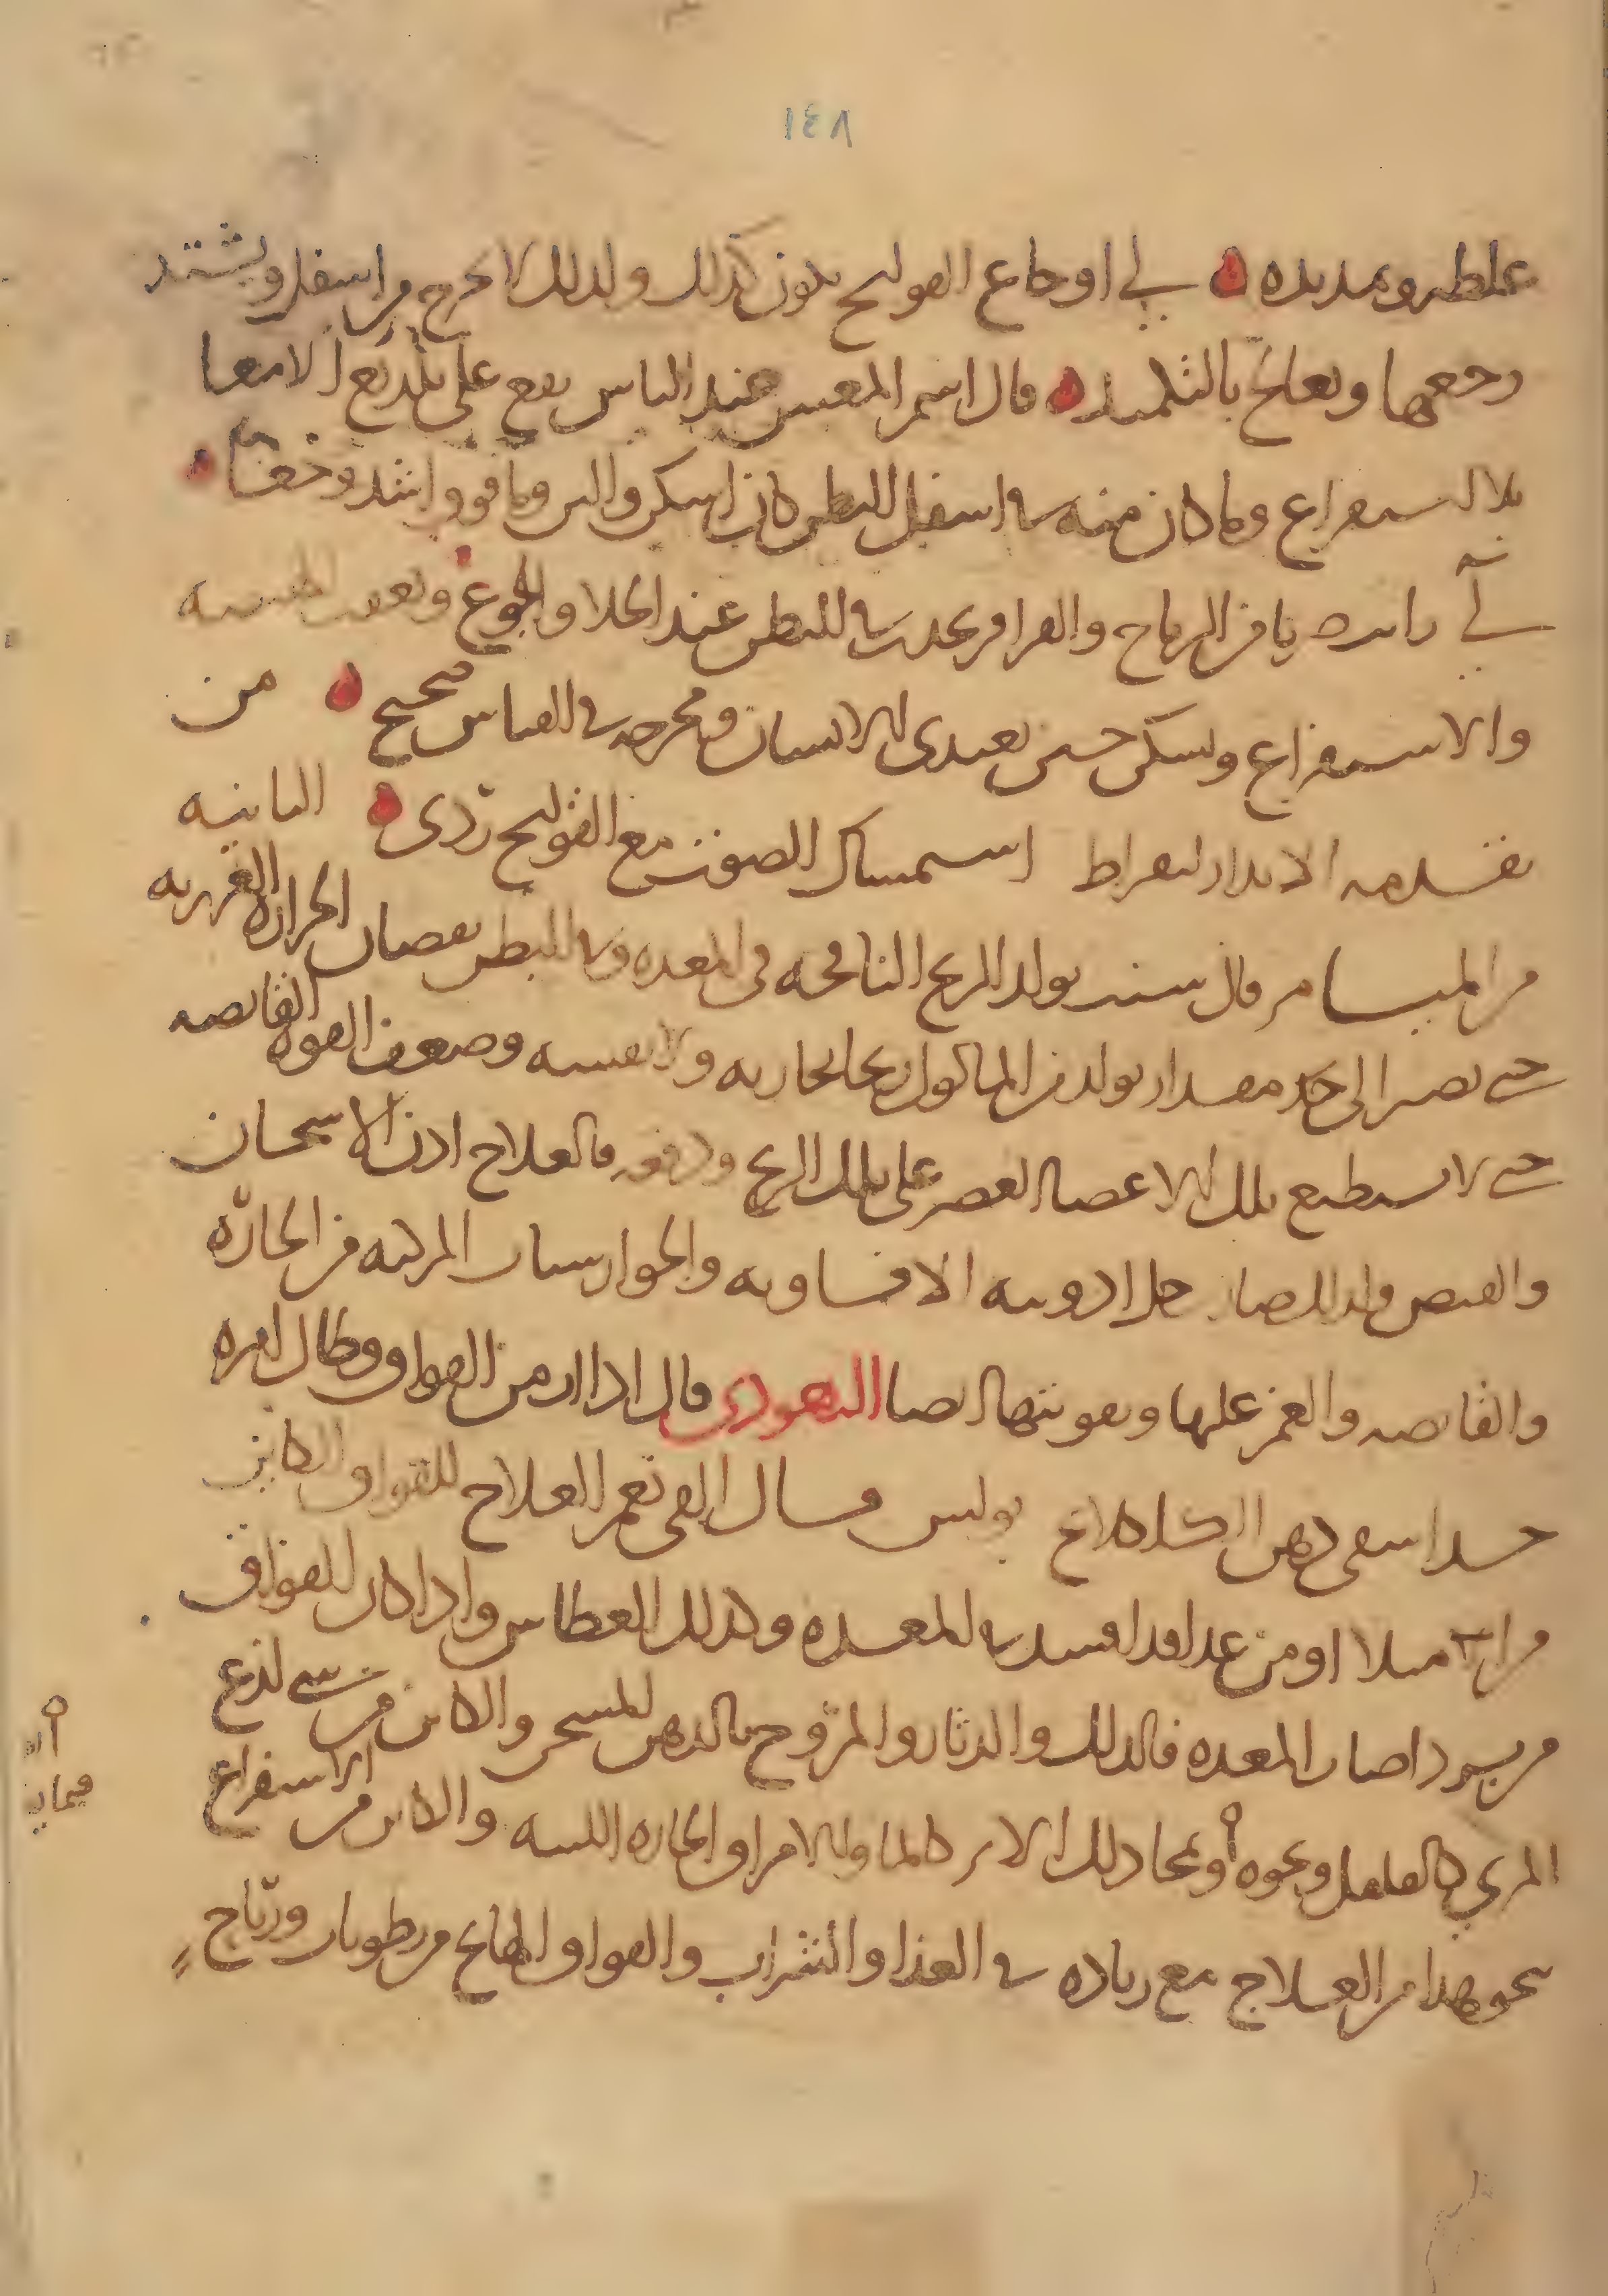 ١٤٨
غلظه وتمديده لي اوجاع القولنج يكون كذلك ولذلك لا يخرج من اسفل ويشتد
وجعها ويعالج بالتكميد قال اسم المغس عند الناس يقع على تلذيع الامعا
بلا استفراغ وما كان منه في اسفل البطن كان اسكن والين وما فوق اشد وخفقا
لي رايت يا قر الرياح والقراقر يحدث في البطن عند الخلا والجوع وتعقب
والاستفراغ ويسكن حين يغتدى الانسان ومخرجه في القياس صحيح من
تقدمة الانذار لبقراط استمساك الصوت مع القولنج ردى الثانيه
من الميامر قال سبب تولد الريح النافخه فى المعده وفى البطن نقصان الحرارة الغريزيه
حتى تصير الى حد مقدار تولد من الماكول ريحا بخاريه ولا تفشيه وضعف القوة القابضه
حتى لا تستطيع تلك الاعضا العصر على تلك الريح ودفعه فالعلاج اذن الاسخان
والقبض ولذلك صار جل ادويته الافاويه والجوارشنات المركبه من الحارّة
والقابضه والغمز عليها وتقويتها ايضا اليهودى قال اذا ازمن الفواق وطال امره
جدا سقى دهن الكلكلانج بولس قال القى نعم العلاج للفواق الكاين
من امتلا او من غذا قد فسد في المعده وكذلك العطاس واذا كان الفواق
من برد اصاب المعده فالدلك والدثار والمروخ بالدهن المسخن والكاين من شى لذع
المري كالفلفل ونحوه أو نحا ذلك الامر كالما والامراق الحاره اللينه والكاين من الاستفراغ
نحو هذا من العلاج مع زياده في الغذا والشراب والفواق الهايج من رطوبات ورياح